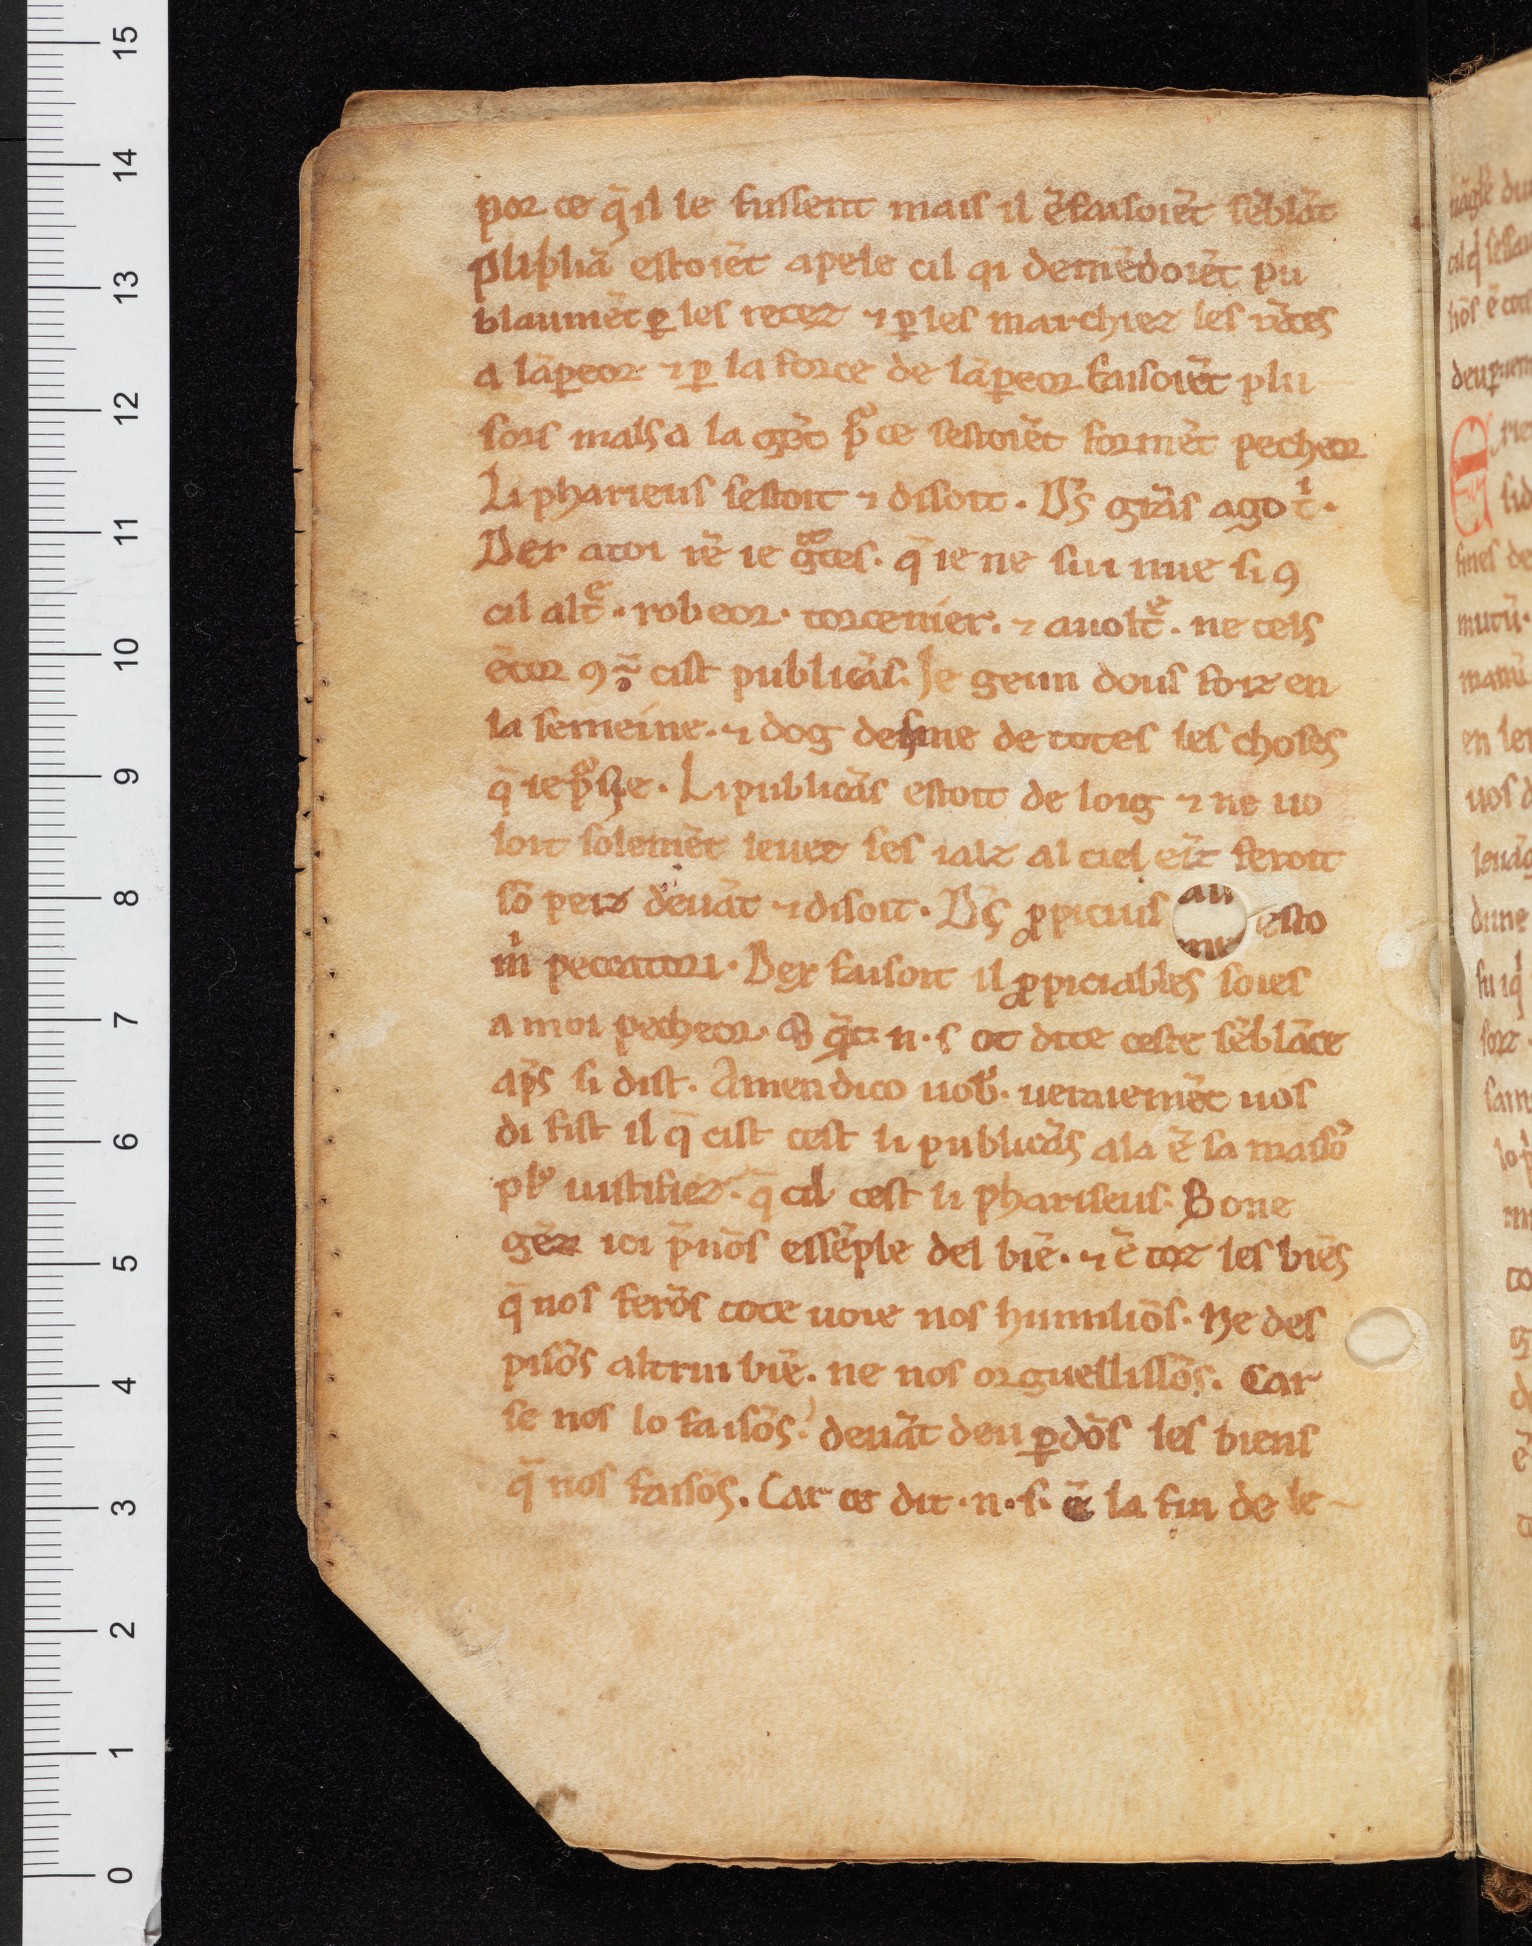 por ce q̄ il le fussent mais il ēfaisoiēt sēblāt
plipliā estoiēt apele cil qi demēdoiēt pu
blaumēt ꝑ les recez ⁊ ꝑ les marchiez les rētes
a lāꝑeor ⁊ ꝑ la force de lāꝑeor faisoiēt plu
sors mals a la gēt pͦ ce sestoiēt formēt pecheor
Li pharieus sestoit ⁊ disoit. Dꝰs grās ago tⁱ.
Dex a toi rē ie gͣces. q̄ ie ne sui mie si ꝯ
cil altͤ. robeor. torcenier. ⁊ auoltͤ. ne cels
ētor ꝯ ē cist publicās. Je geun dous foiz en
la semeine. ⁊ dog desme de totes les choses
q̄ ie pͦsie. Li publicās estoit de loig ⁊ ne uo
loit solemēt leuer ses ialz al ciel eīz feroit
sō peiz deuāt ⁊ disoit. Dꝰs ꝓpicius esto
mⁱ peccatori. Dex faisoit il ꝓpiciables soies
a moi pecheor. Et qͣt. n. s ot dite ceste sēblāce
ap̄s si dist. Amen dico uobꝭ. ueraiemēt uos
di fist il q̄ cist cest li publicās ala ē sa maisō
plꝰ iustifiez. q̄ cil cest li phariseus. Bone
gēz ici p̄nōs essēple del biē. ⁊ ē toz les biēs
q̄ nos ferōs tote uoie nos humiliōs. Ne des
pisōs altrui biē. ne nos orguellissōs. Car
se nos lo faisōs. deuāt deu ꝑdōs les biens
q̄ nos faisōs. Car ce dit. n. s. ē la fin de le